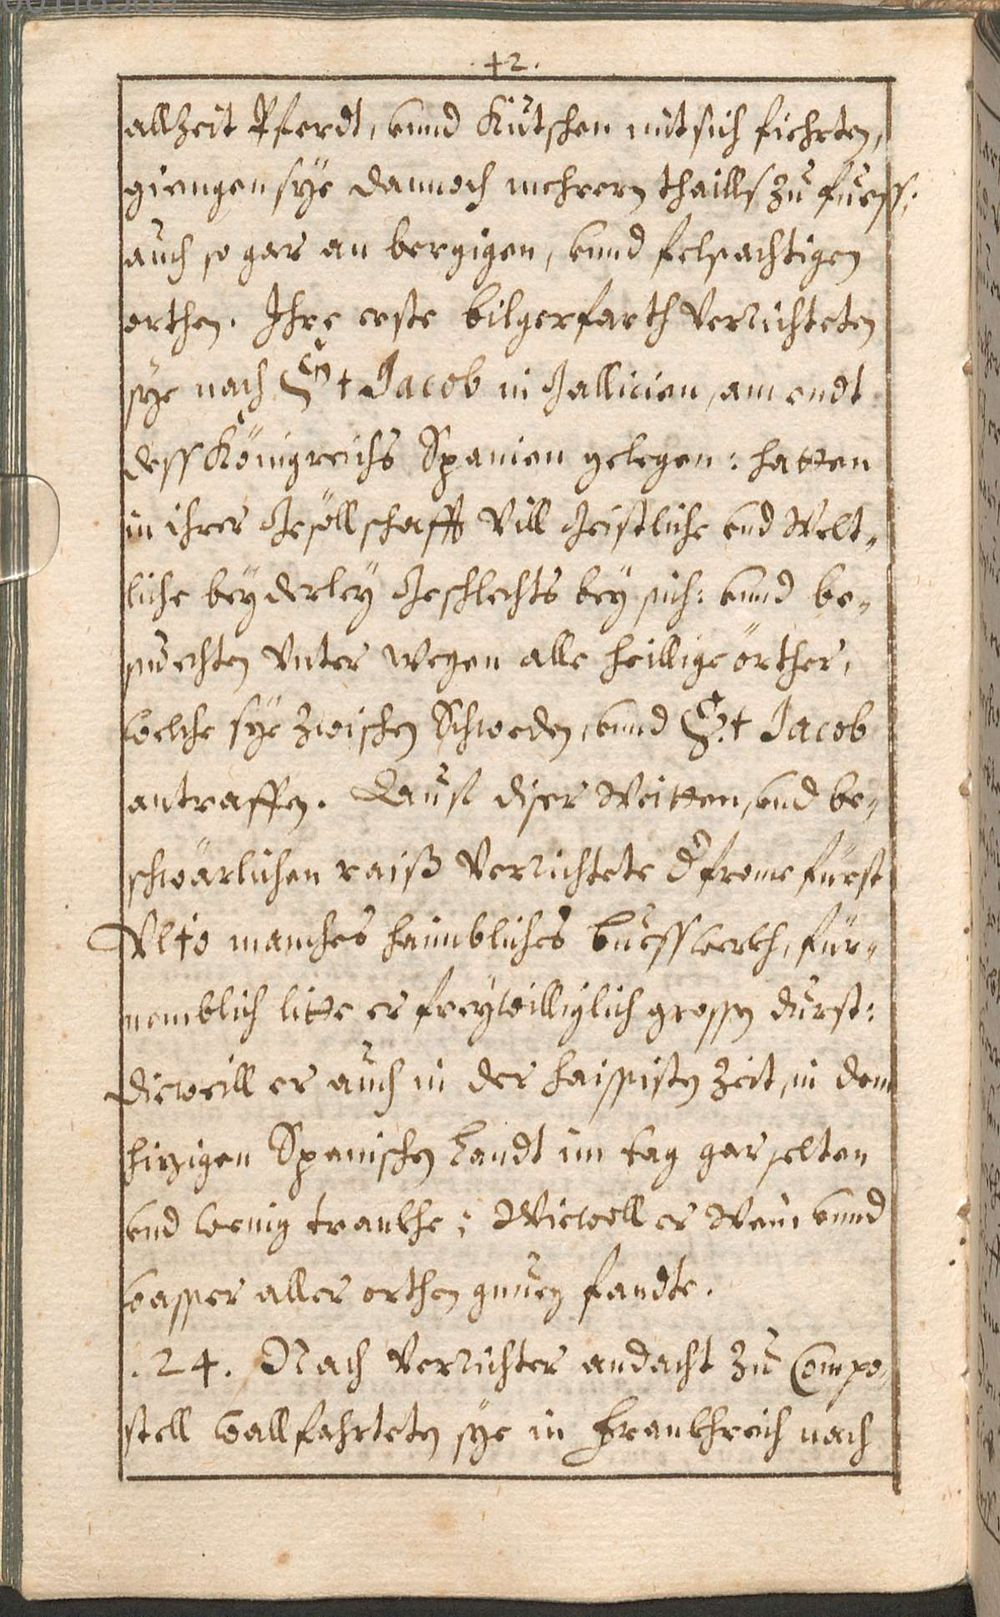 .42.
allzeit Pferdt, unnd Kütschen mit sich fiehrten,
giengen sÿe dannoch mehrern thaills zu fuess:
auch so gar an bergigen, unnd felsachtigen
orthen. Ihre erste bilgerfarth Verrichteten
sÿe nach St Jacob in Gallicien, am endt
dess Königreichs Spanien gelegen: hatten
in ihrer Gesöllschafft Vill Geistliche und Welt„
liche beÿderleÿ Geschlechts beÿ sich: unnd be„
suechten Unter wegen alle heillige örther,
welche sÿe zwischen Schweden, unnd S.t Jacob
antraffen. Laut diser Weitten, und be„
schwärlichen raiß Verrichtete d' frome fürst
Ulfo manches haimbliches buesswerkh, für„
nemblich litte er freÿwilliglich grossen durst:
dieweill er auch in der haissisten Zeit, in dem
hizigen Spanischen Landt im tag gar selten
und wenig trankhe; Wiewoll er Wein unnd
wasser aller orthen gnueg fandte.
.24. Nach Verrichter andacht zu Compo„
stell wallfahrteten sÿe in Frankhreich nach